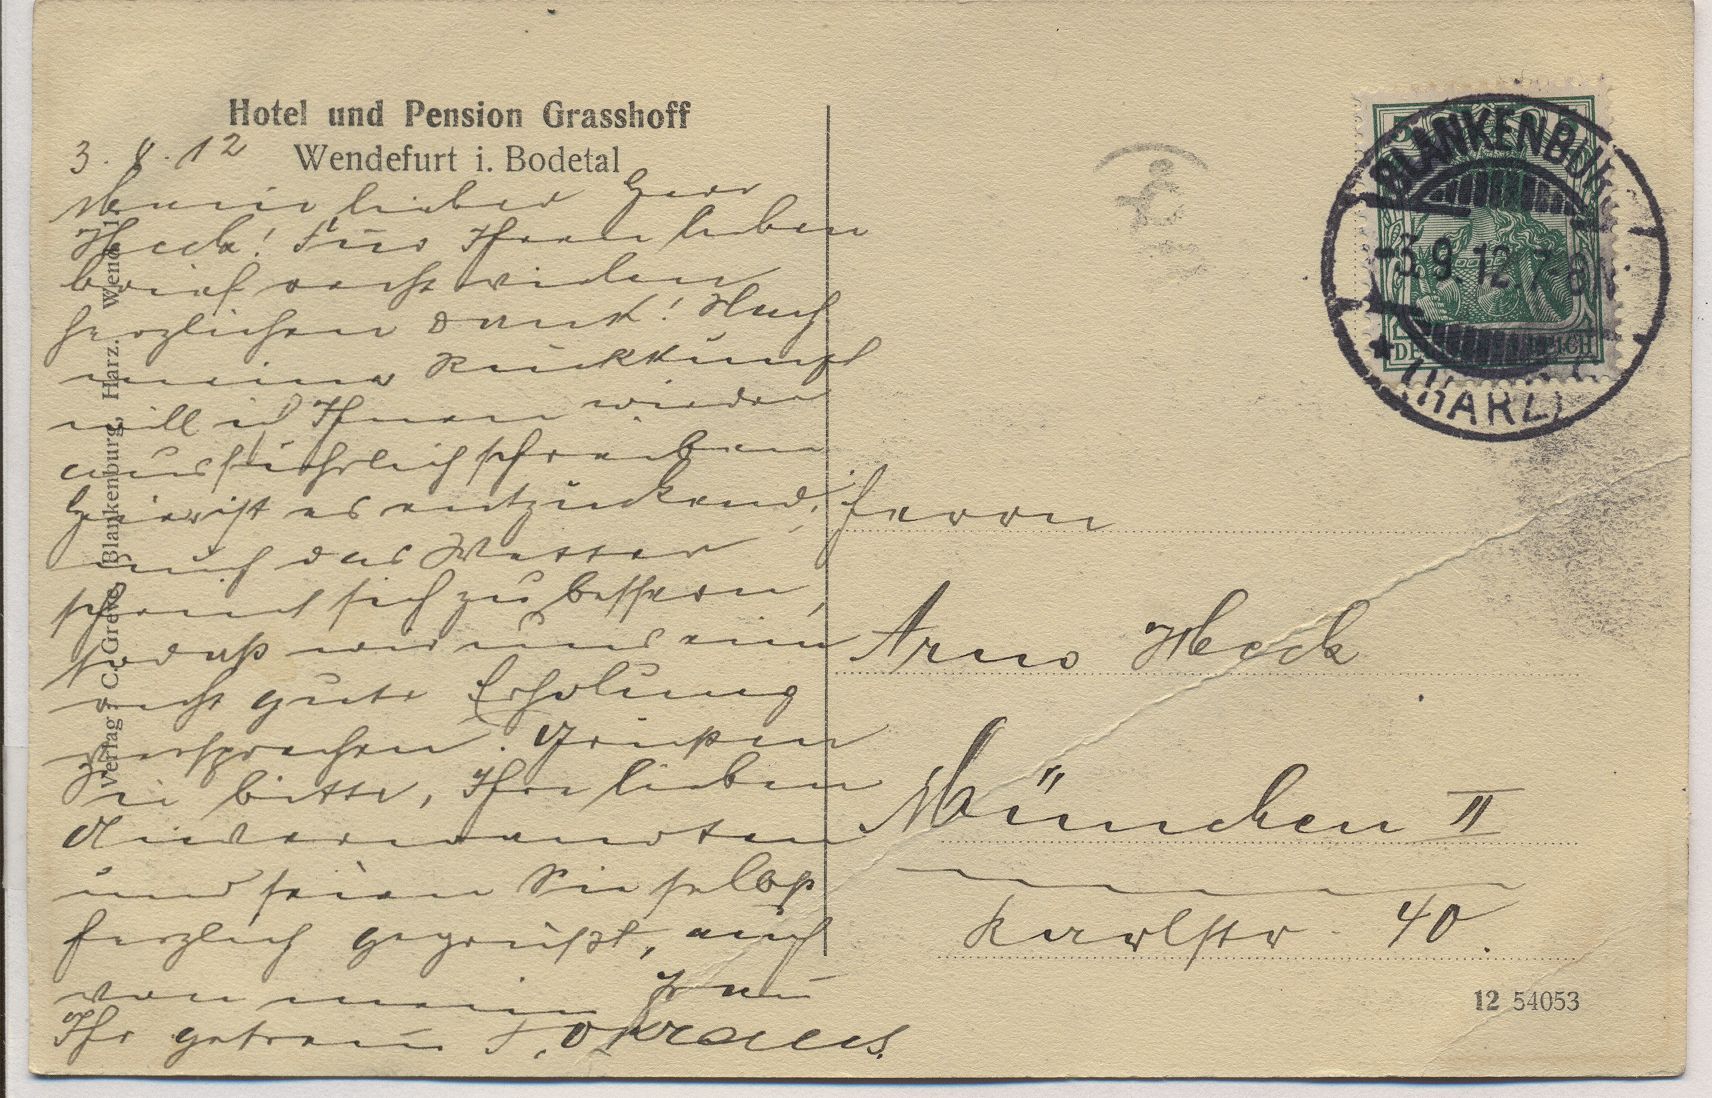 Hotel und Pension Grasshoff
Wendefurt i. Bodetal
3. 9. 12
Mein lieber Herr
Heck! Für Ihren lieben
Brief recht vielen
herzlichen Dank! Nach
meiner Rückkunft
will ich Ihnen wieder
ausführlich schreiben
Hier ist es entzückend;
auch das Wetter
scheint sich zu bessern,
sodaß wir uns eine
recht gute Erholung
versprechen. Grüßen
Sie bitte, Ihre lieben
Anverwandten
und seien Sie selbst
herzlich gegrüßt, auch
von meiner Frau
Ihr getreuer
Verlag: C. Greve, Blankenburg, Harz. Wend. 1.
DEUTSCHES REICH
BLANKENBURG
-3.9.12.7-8N.
* (HARZ)
Herrn
Arno Heck
München II
Karlstr. 40.
12 54053